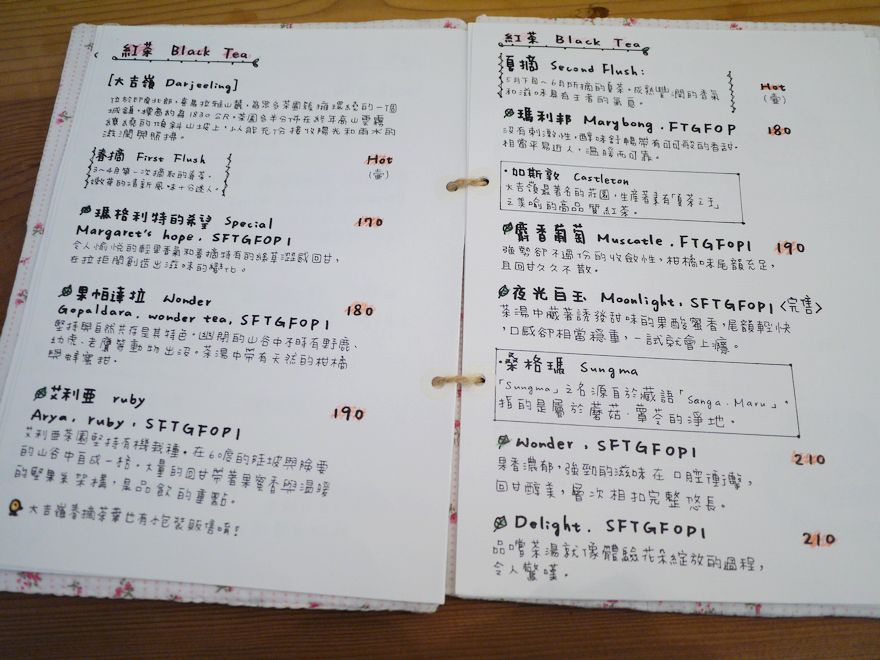 紅茶 Black Tea
[大吉嶺 Darjeeling]
位於印度北部,喜馬拉雅山麓,為眾多茶園錢擁環繞的一個
城鎮,標高約為1830公尺。茶園多半分佈在終年高山雲霧
繚繞的傾斜山坡上,以能充份接收陽光和雨水的
滋潤與照拂。
春摘 First Flush
3~4月第一次摘取的春茶,
嫩芽的清新風味十分迷人。
Hot
(壺)
瑪格利特的希望 Special
Margaret's hope, SFTGFOP1
170
令人愉悅的輕果香氣和春摘特有的綠草澀感回甘,
在拉拒間創造出滋味的變化。
果帕達拉 Wonder
Gopaldara, wonder tea, SFTGFOP1
180
堅持與自然共存是其特色。幽閉的山谷中不時有野鹿、
幼虎、老鷹等動物出沒。茶湯中帶有天然的柑橘
與蜂蜜甜。
艾利亞 ruby
Arya, ruby, SFTGFOP1
190
艾利亞茶園堅持有機栽種。在60度的陡坡與險要
的山谷中自成一格。大量的回甘帶著果蜜香與溫緩
的堅果系架構,是品飲的重點。
大吉嶺春摘茶葉也有小包裝販售唷!
紅茶 Black Tea
夏摘 Second Flush:
5月下旬~6月所摘的夏茶,成熟豐潤的香氣
和滋味具有王者的氣息。
Hot
(壺)
瑪利邦 Marybong, FTGFOP
180
沒有刺激性,醇味舒暢帶有可可般的香甜。
相當平易近人,溫暖而可靠。
·加斯敦 Castleton
大吉嶺最著名的莊園,生產著素有「夏茶之王」
之美喻的高品質紅茶。
麝香葡萄 Muscatle, FTGFOP1
190
強勢卻不過份的收斂性,柑橘味尾韻充足,
且回甘久久不散。
夜光白玉 Moonlight, SFTGFOP1 <完售>
茶湯中藏著誘發甜味的果酸蜜香,尾韻輕快
,口感卻相當穩重,一試就會上癮。
·桑格瑪 Sungma
「Sungma」之名源自於藏語「Sanga. Maru」,
指的是屬於蘑菇·蕈菇的淨地。
Wonder, SFTGFOP1
210
果香濃郁,強勁的滋味在口腔衝擊,
回甘醇美,層次相扣完整悠長。
Delight, SFTGFOP1
210
品嚐茶湯就像體驗花朵綻放的過程,
令人驚嘆。